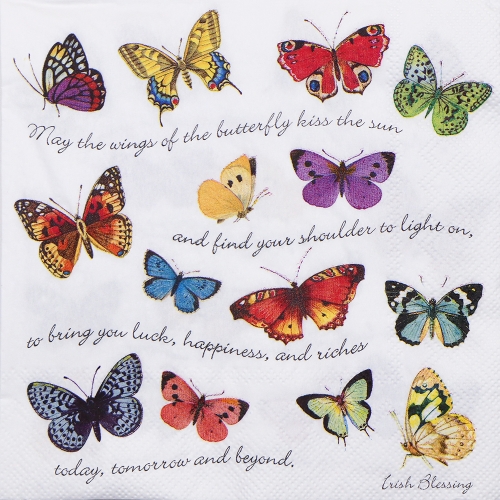 May the wings of the butterfly kiss the sun
and find your shoulder to light on,
to bring you luck, happiness, and riches
today, tomorrow and beyond.
Irish Blessing